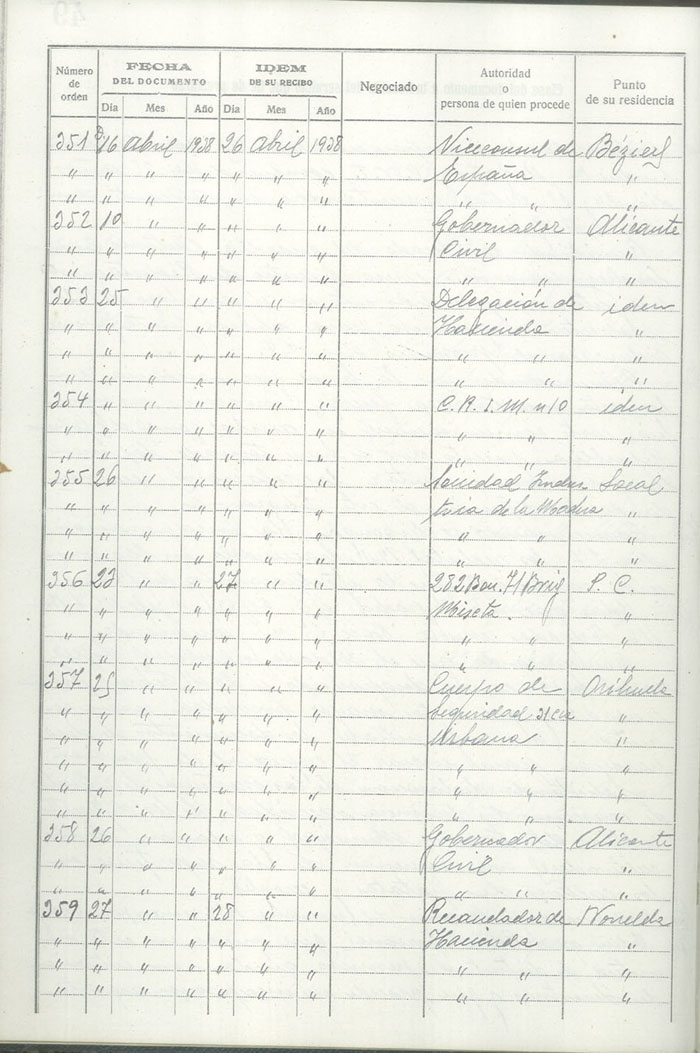 Número de orden | FECHA DEL DOCUMENTO | IDEM DE SU RECIBO | Negociado | Autoridad o persona de quien procede | Punto de su residencia
Día | Mes | Año | Día | Mes | Año
351 | 16 | Abril | 1938 | 26 | Abril | 1938 | Viceconsul de | Béziers
" | " | " | " | " | " | " | España | "
" | " | " | " | " | " | " | " " | "
352 | 10 | " | " | " | " | " | Gobernador | Alicante
" | " | " | " | " | " | " | Civil | "
" | " | " | " | " | " | " | " " | "
353 | 25 | " | " | " | " | " | Delegación de | iden
" | " | " | " | " | " | " | Hacienda | "
" | " | " | " | " | " | " | " " | "
" | " | " | " | " | " | " | " " | "
354 | " | " | " | " | " | " | C. R. I. M. n 10 | iden
" | " | " | " | " | " | " | " " | "
" | " | " | " | " | " | " | " " | "
355 | 26 | " | " | " | " | " | Local
" | " | " | " | " | " | " | tria de la Madera | "
" | " | " | " | " | " | " | " " | "
" | " | " | " | " | " | " | " " | "
356 | 23 | " | " | 27 | " | " | 282 Bon. 71 Brig | P. C.
" | " | " | " | " | " | " | Mixta. | "
" | " | " | " | " | " | " | " " | "
" | " | " | " | " | " | " | " " | "
357 | 25 | " | " | " | " | " | Cuerpo de | Orihuela
" | " | " | " | " | " | " | Seguridad 31 Cia | "
" | " | " | " | " | " | " | Urbana | "
" | " | " | " | " | " | " | " " | "
" | " | " | " | " | " | " | " " | "
" | " | " | " | " | " | " | " " | "
358 | 26 | " | " | " | " | " | Gobernador | Alicante
" | " | " | " | " | " | " | Civil | "
" | " | " | " | " | " | " | " " | "
359 | 27 | " | " | 28 | " | " | Recaudador de | Novelda
" | " | " | " | " | " | " | Hacienda | "
" | " | " | " | " | " | " | " " | "
" | " | " | " | " | " | " | " " | "